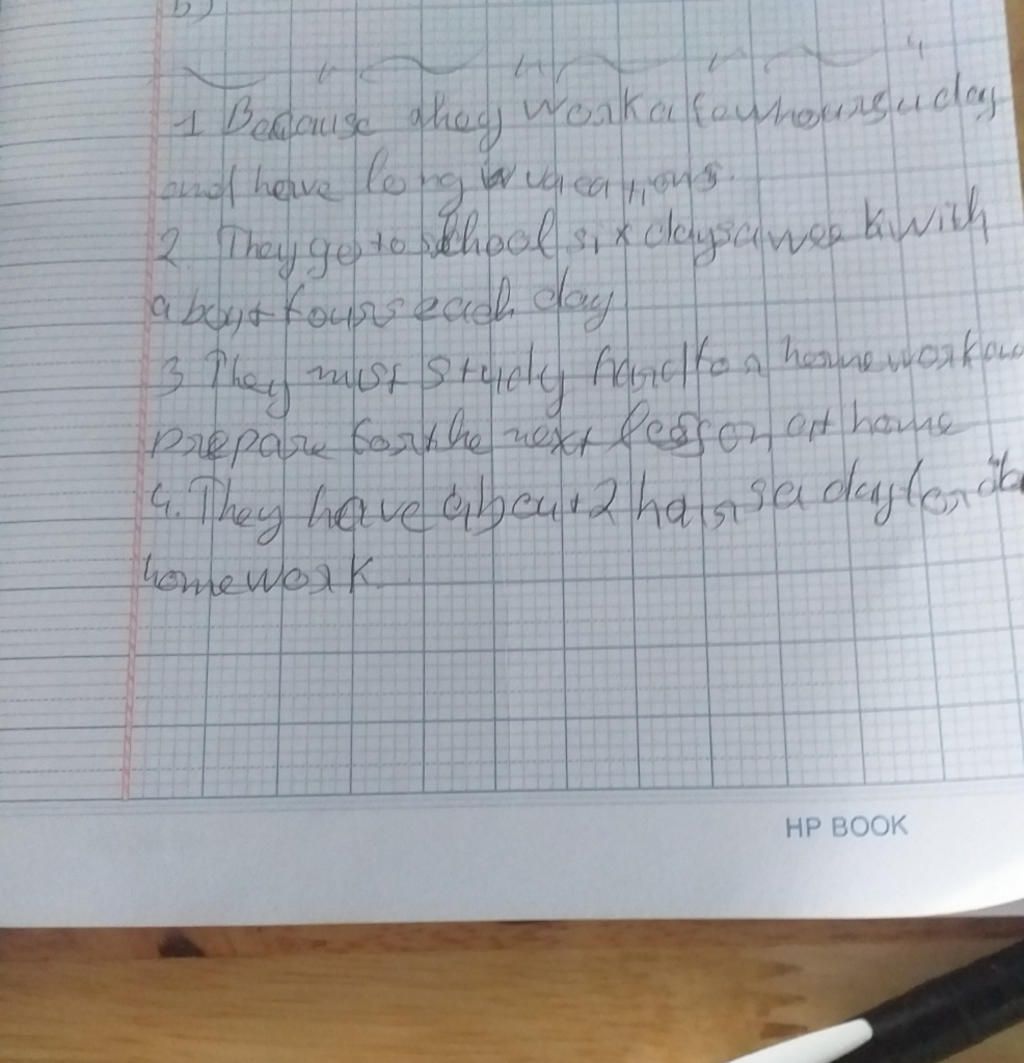 b)
1 Because they work a few hours a day
and have long vacations.
2. They go to school six days a week with
about fours each day
3 They must study hard for homework
prepare for the next lesson at home
4. They have about 2 hours a day for
homework.
HP BOOK